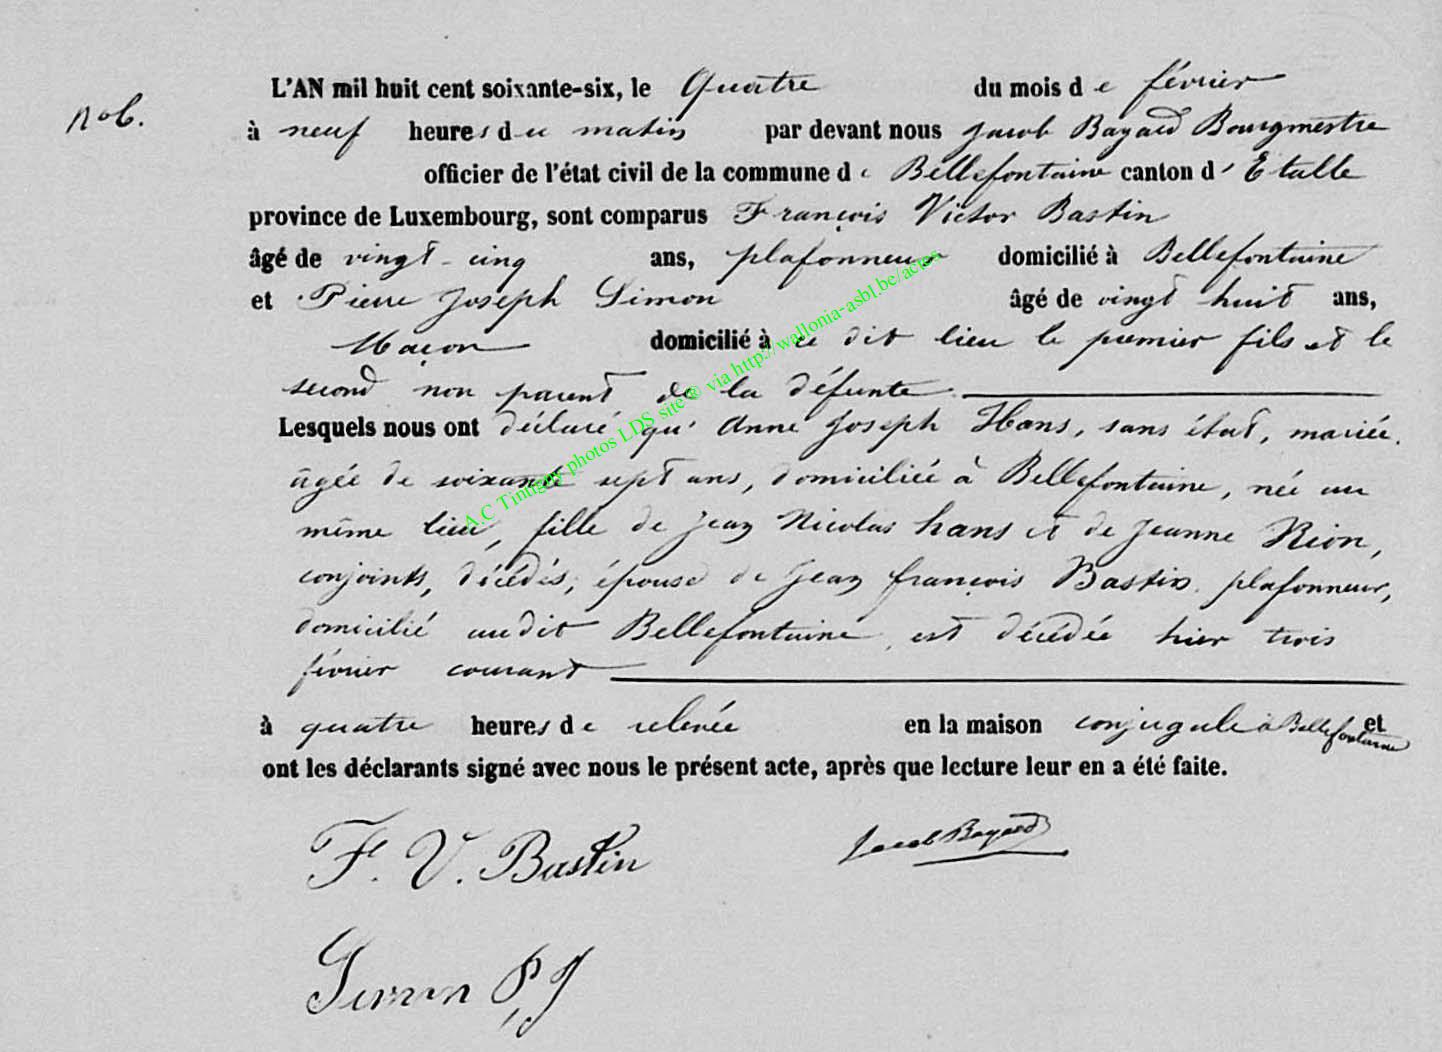 No 6.
L'AN mil huit cent soixante-six, le Quatre du mois de février
à neuf heures du matin par devant nous Jacob Bayard Bourgmestre
officier de l'état civil de la commune de Bellefontaine canton d'Etalle
province de Luxembourg, sont comparus François Victor Bastin
âgé de vingt-cinq ans, plafonneur domicilié à Bellefontaine
et Pierre Joseph Simon âgé de vingt huit ans,
Maçon domicilié à ce dit lieu le premier fils et le
second non parent de la défunte
Lesquels nous ont déclaré qu'Anne Joseph Hans, sans état, mariée.
âgée de soixante sept ans, domiciliée à Bellefontaine, née au
même lieu, fille de Jean Nicolas hans et de Jeanne Rion,
conjoints, décédés, épouse de Jean françois Bastin plafonneur,
domicilié audit Bellefontaine, est décédée hier trois
février courant
à quatre heures de relevée en la maison conjugale à Bellefontaine et
ont les déclarants signé avec nous le présent acte, après que lecture leur en a été faite.
F. V. Bastin
Jacob Bayard
Simon P, J
A.C Tintigny photos LDS site @ via http://wallonia-asbl.be/actes